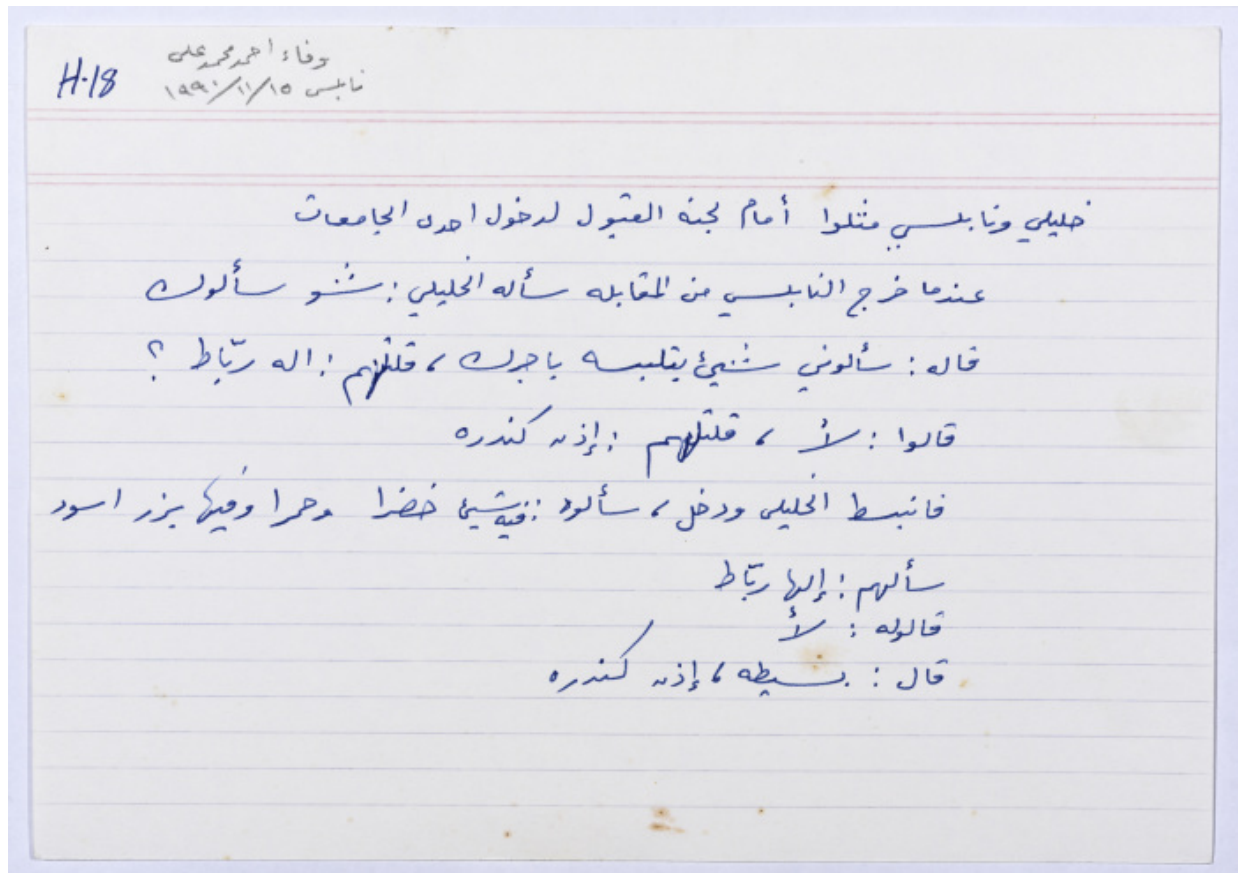 وفاء احمد محمد علي
H-18
نابلس ١٥/١١/١٩٩٠
خليلي ونابلسي مثلوا أمام لجنه القبول لدخول احدى الجامعات
عندما خرج النابلسي من المقابله سأله الخليلي : شو سألوك
قال : سألوني شيئ بتلبسه باجرك ، قلتلهم : اله ربّاط ؟
قالوا : لأ ، قلتلهم : إذن كندره
فانبسط الخليلي ودخل ، سألوه : فيه شيئ خضرا وحمرا وفيها بزر اسود
سألهم : إلها ربّاط
قالوله : لأ
قال : بسيطه ، إذن كندره